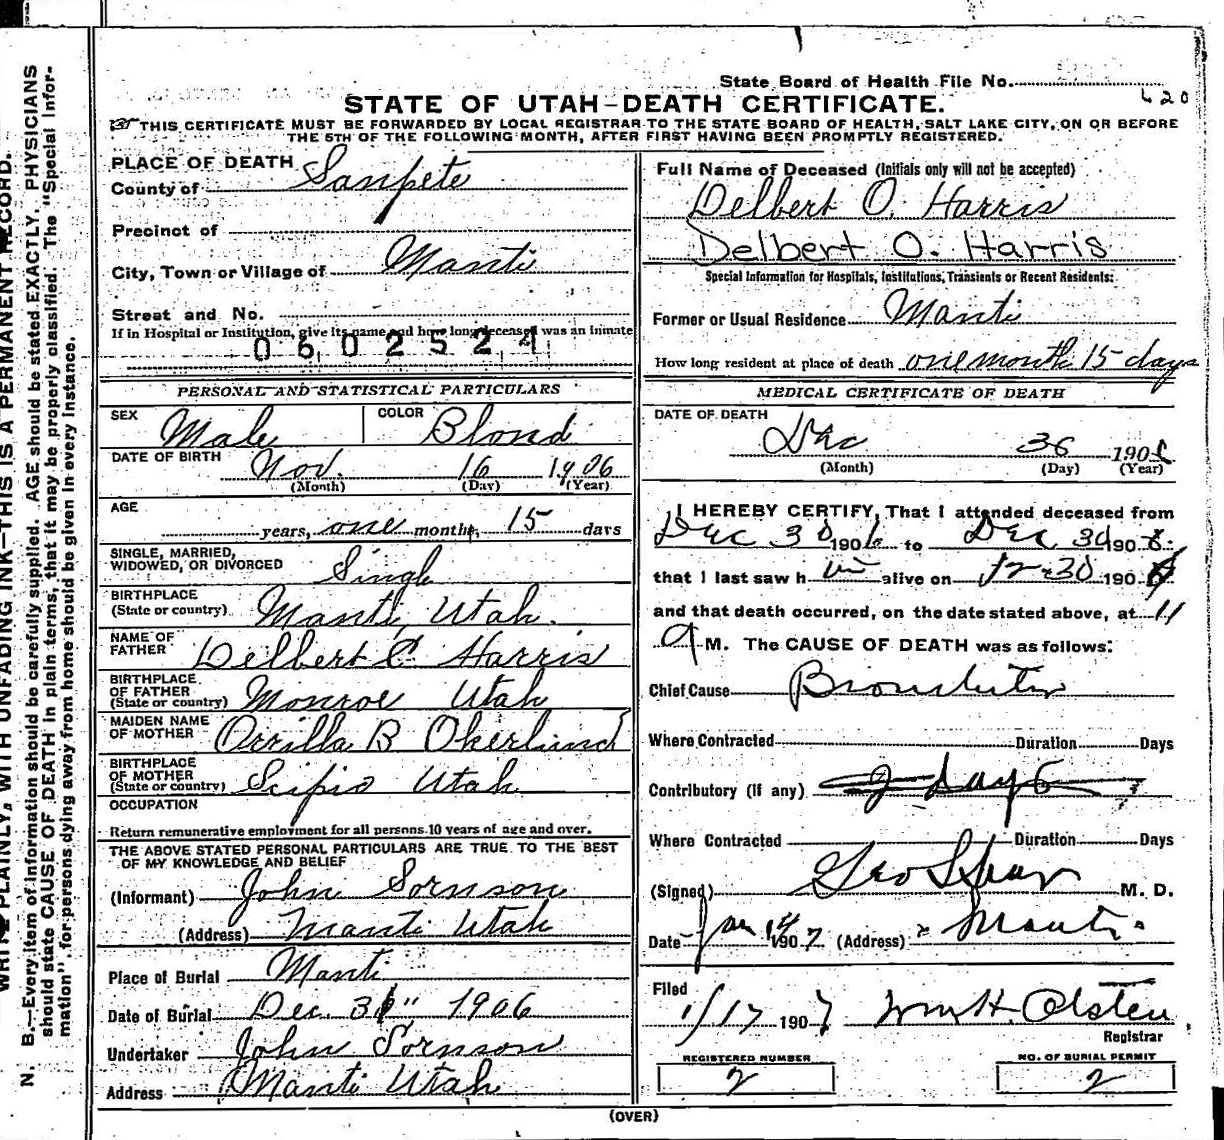 State Board of Health File No.
620
STATE OF UTAH–DEATH CERTIFICATE.
THIS CERTIFICATE MUST BE FORWARDED BY LOCAL REGISTRAR TO THE STATE BOARD OF HEALTH, SALT LAKE CITY, ON OR BEFORE
THE 5TH OF THE FOLLOWING MONTH, AFTER FIRST HAVING BEEN PROMPTLY REGISTERED.
PLACE OF DEATH
County of Sanpete
Precinct of
City, Town or Village of Manti
Street and No.
If in Hospital or Institution, give its name and how long deceased was an inmate
0602524
PERSONAL AND STATISTICAL PARTICULARS
SEX Male COLOR Blond
DATE OF BIRTH Nov. 16 1906
(Month) (Day) (Year)
AGE
years, one months, 15 days
SINGLE, MARRIED,
WIDOWED, OR DIVORCED Single
BIRTHPLACE
(State or country) Manti, Utah.
NAME OF
FATHER Delbert C. Harris
BIRTHPLACE
OF FATHER
(State or country) Monroe Utah
MAIDEN NAME
OF MOTHER Orrilla B Okerlund
BIRTHPLACE
OF MOTHER
(State or country) Scipio Utah
OCCUPATION
Return remunerative employment for all persons 10 years of age and over.
THE ABOVE STATED PERSONAL PARTICULARS ARE TRUE TO THE BEST
OF MY KNOWLEDGE AND BELIEF
(Informant) John Sornson
(Address) Manti Utah
Place of Burial Manti
Date of Burial Dec. 31" 1906
Undertaker John Sornson
Address Manti Utah
Full Name of Deceased (Initials only will not be accepted)
Delbert O. Harris
Delbert O. Harris
Special Information for Hospitals, Institutions, Transients or Recent Residents:
Former or Usual Residence Manti
How long resident at place of death one month 15 days
MEDICAL CERTIFICATE OF DEATH
DATE OF DEATH
Dec 30 1906
(Month) (Day) (Year)
I HEREBY CERTIFY, That I attended deceased from
Dec 30 1906 to Dec 30 1906
that I last saw h im alive on 12-30 1906
and that death occurred, on the date stated above, at 11
A M. The CAUSE OF DEATH was as follows:
Chief Cause Bronchitis
Where Contracted Duration Days
Contributory (if any) Days
Where Contracted Duration Days
(Signed) Geo M. D.
Date Jan 14 1907 (Address) Manti.
Filed
1/17 1907 Wm H. Olsten
Registrar
REGISTERED NUMBER
2
NO. OF BURIAL PERMIT
2
(OVER)
PLAINLY, WITH UNFADING INK—THIS IS A PERMANENT RECORD.
N. B.—Every item of information should be carefully supplied. AGE should be stated EXACTLY. PHYSICIANS
should state CAUSE OF DEATH in plain terms, that it may be properly classified. The "Special Infor-
mation" for persons dying away from home should be given in every instance.